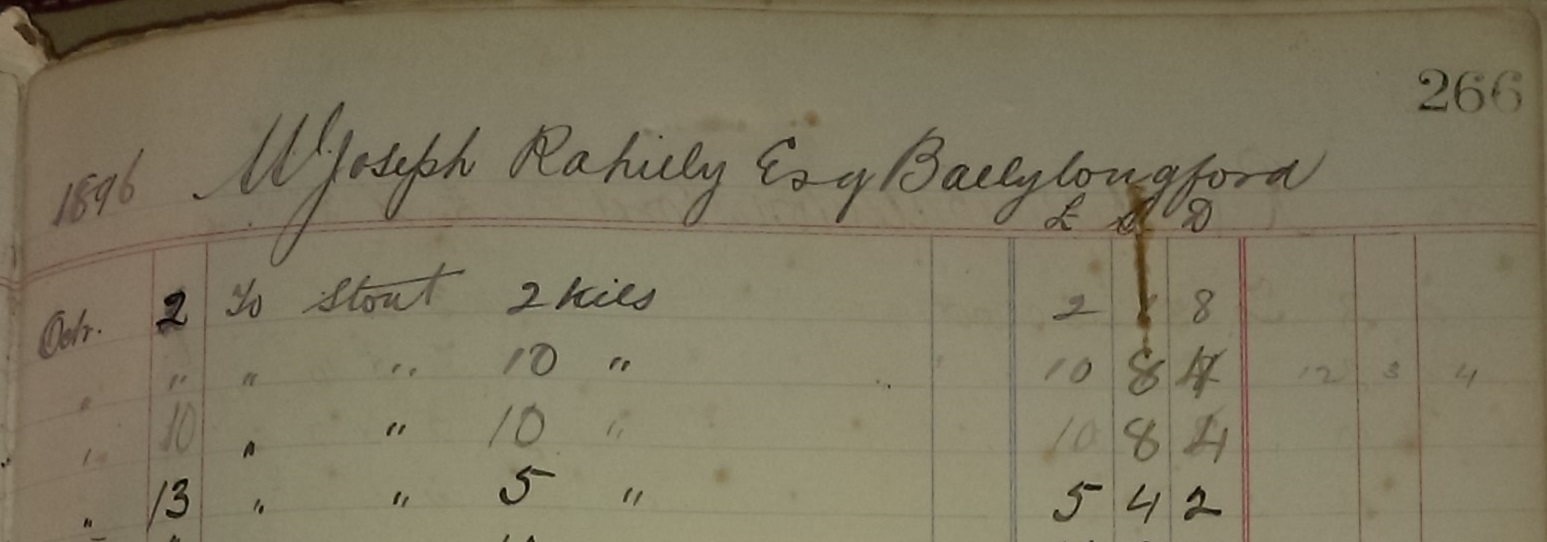 266
1896 Mr Joseph Rahilly Esq Ballylongford
£ S D
Octr. 2 To Stout 2 Kils 2 1 8
" " " " 10 " 10 8 4 12 3 4
" 10 " " 10 " 10 8 4
" 13 " " 5 " 5 4 2